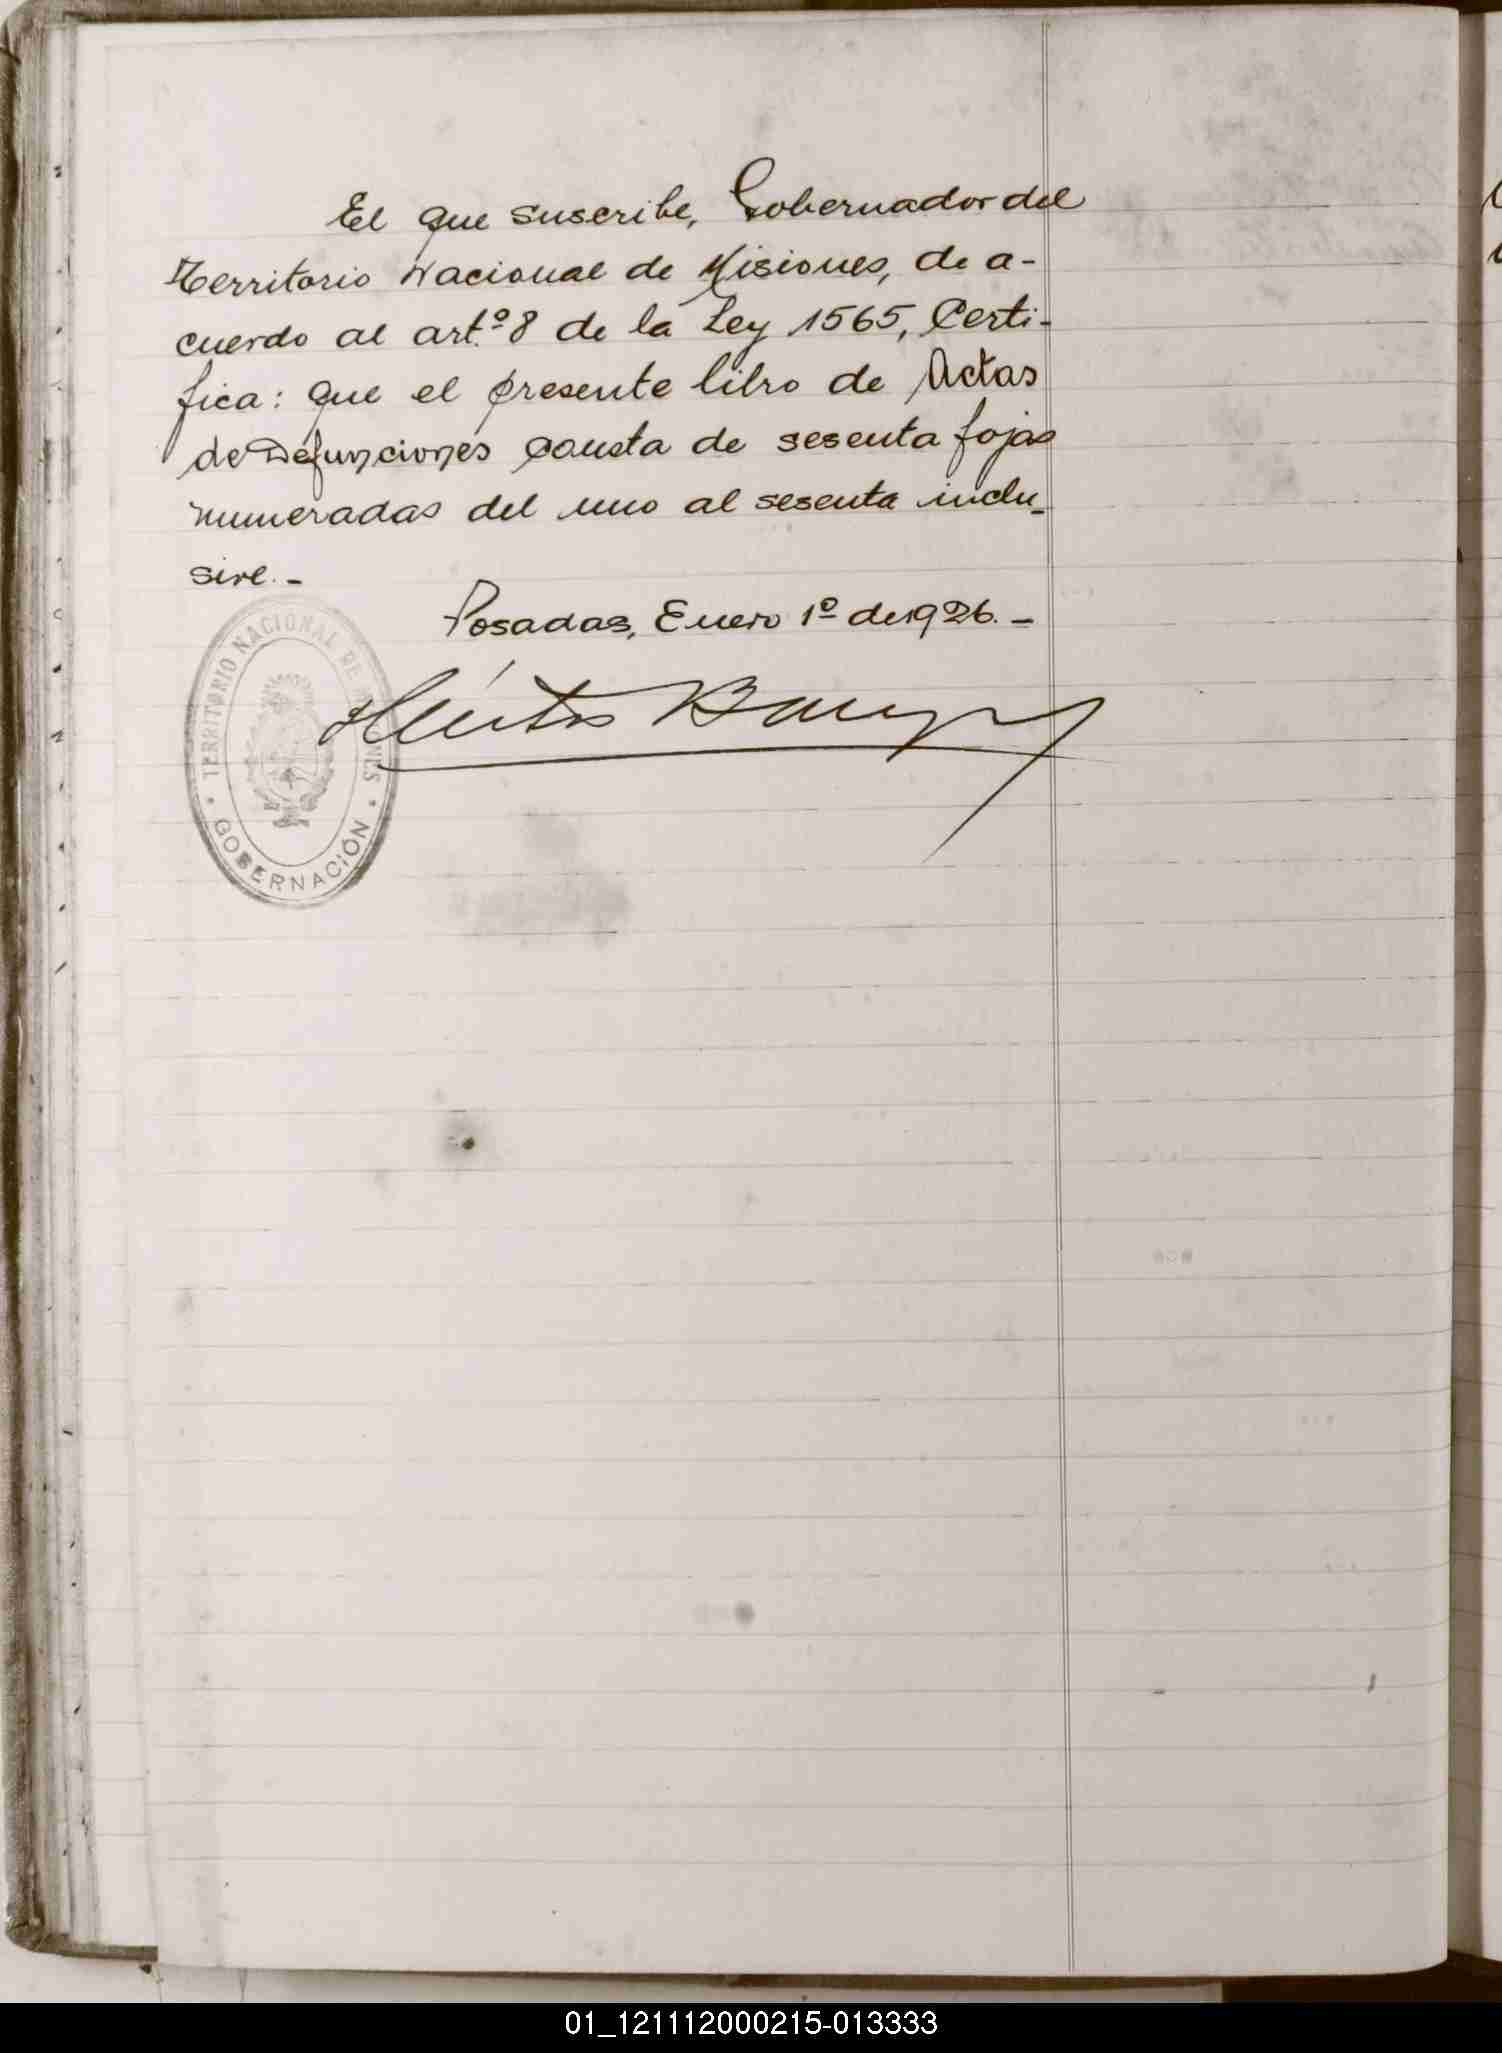 El que suscribe, Gobernador del
Territorio Nacional de Misiones, de a-
cuerdo al art.º 8 de la Ley 1565, Certi-
fica: que el presente libro de Actas
de Defunciones consta de sesenta fojas
numeradas del uno al sesenta inclu-
sive.-
Posadas, Enero 1º de 1926.-
Héctor
TERRITORIO NACIONAL DE MISIONES
GOBERNACIÓN
01_121112000215-013333